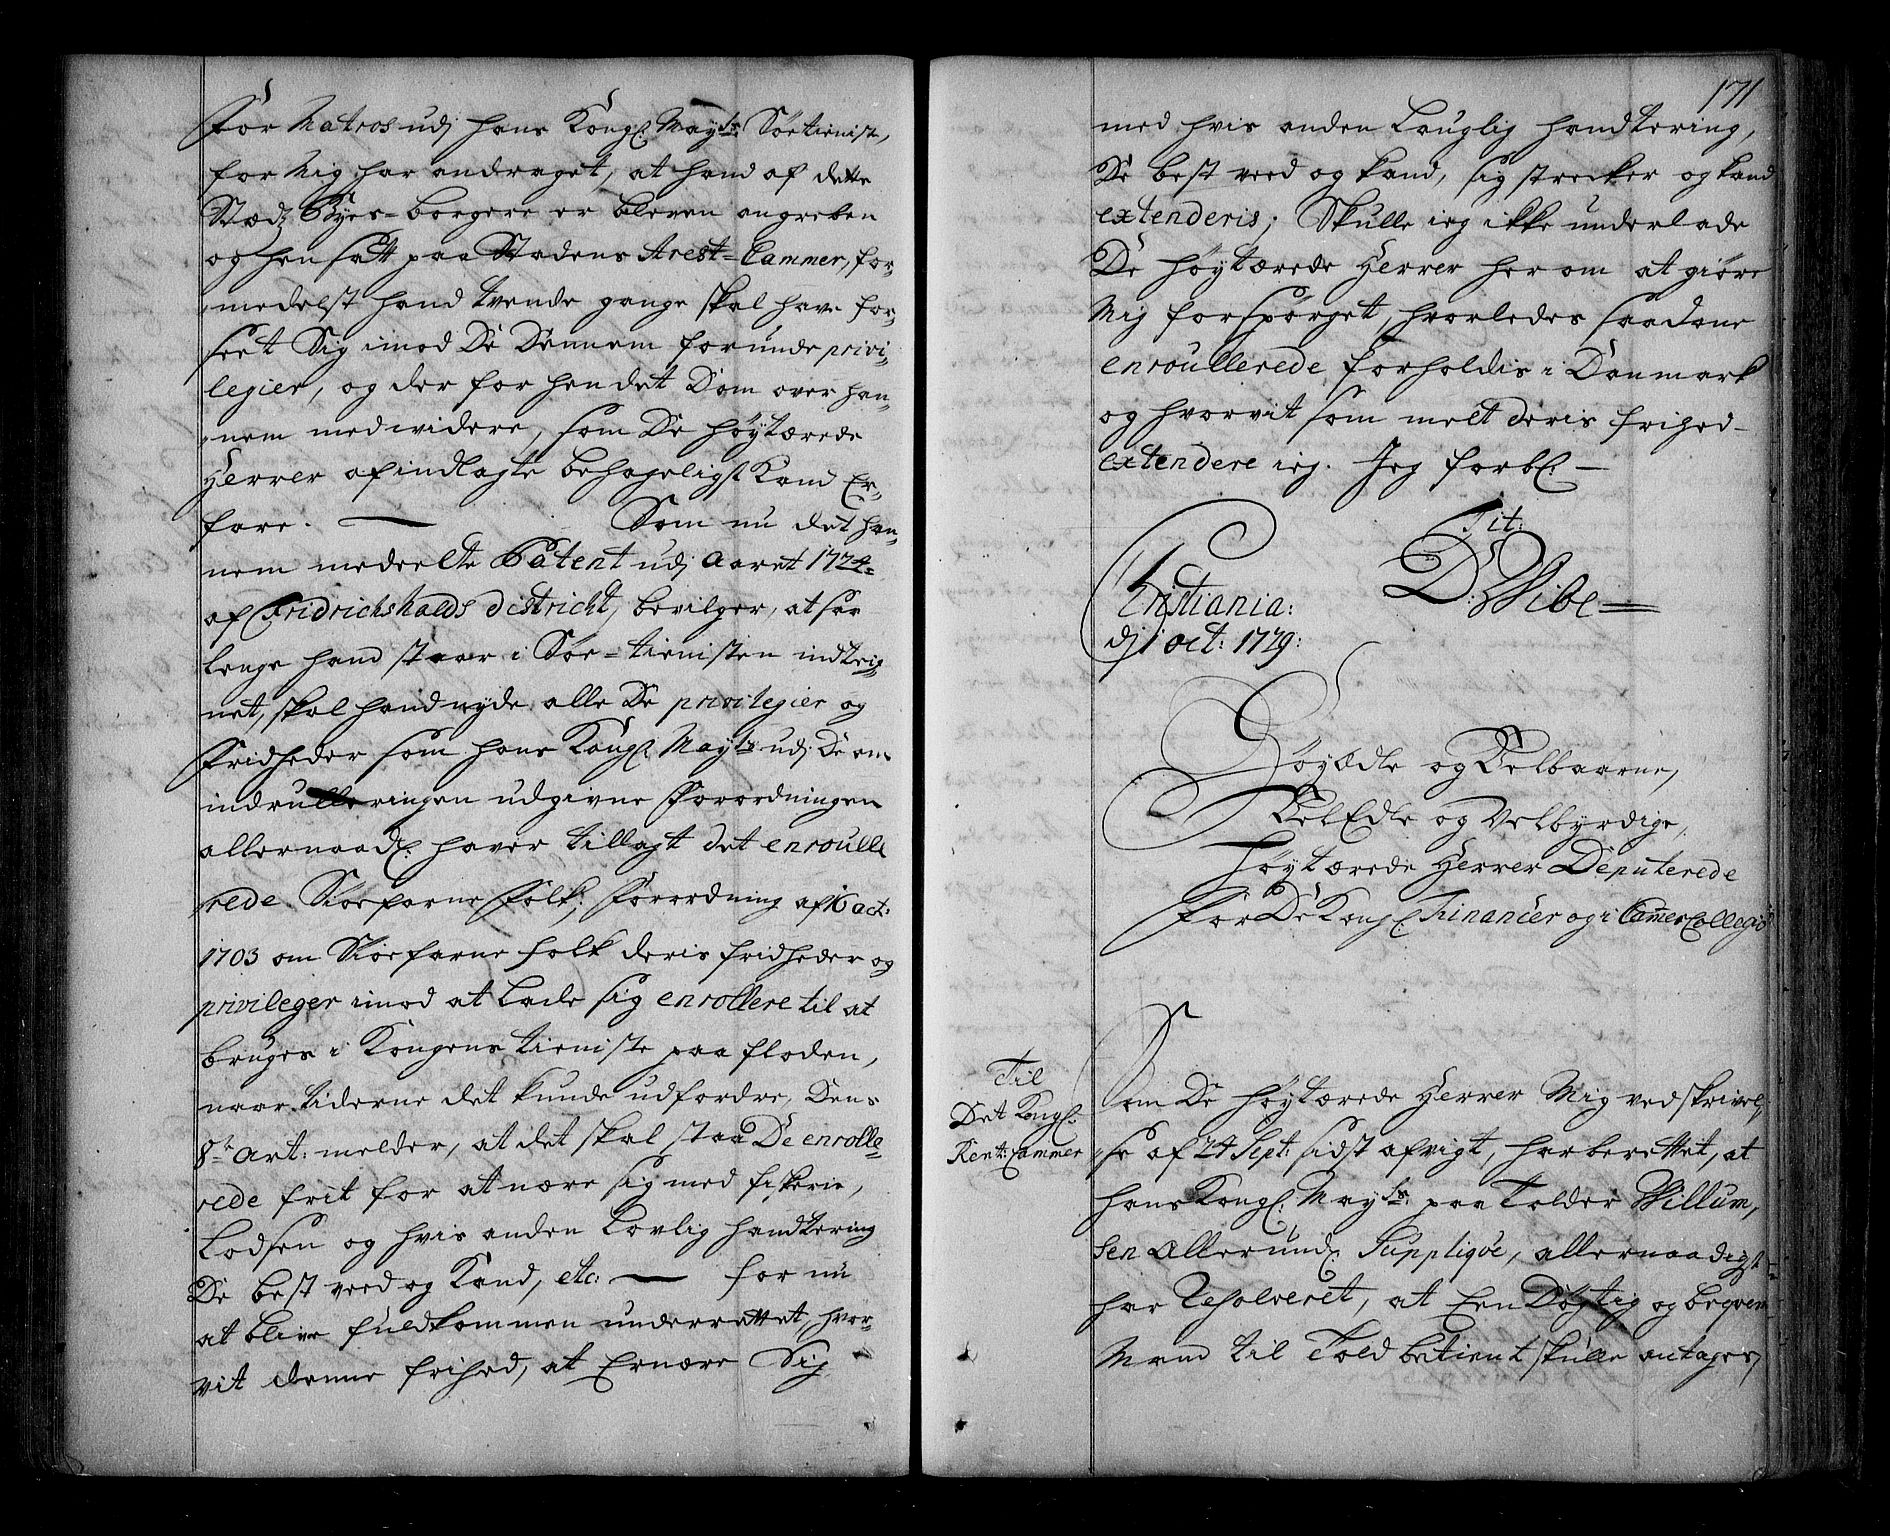 For Matros udj hans Kongl: May:ts Søetieniste,
for Mig har andraget, at hand af dette
Stædz Byes-borgere er bleven angreben
og hensatt paa Stadens Arest-Cammer, for-
medelst hand tvende gange skal have for-
seet Sig imod De Dennem forunde privi-
legier, og der for hendet Dom over han-
nem med widere, som De Høytærede
Herrer af indlagte behageligst Kand Er-
fare. — Som nu det han-
nem medeelte Patent udj Aaret 1724
af Fridrichshalds districht, bevilger, at saa
lenge hand staar i Søe-tienisten indteig-
net, skal hand nyde alle De privilegier og
Fridheder som hans Kongl: May:ts udj De om
indrulleringen udgivne Forordninger
allernaadl: haver tillagt det enroulle
rede Søefarne Folk; Forordning af 6 oct:
1703 om Søefarne folk deris fridheder og
privileger imod at lade sig enrollere til at
bruges i Kongens tieniste paa floden,
naar tiderne det kunde udfordre, Dens
8:de Art: melder, at det skal staa De enrolle-
rede frit for at nære sig med fiskerie,
Lodsen og hvis anden Lovlig handtering
De best veed og Kand, etc: — for nu
at blive fuldkommen underrettet, hvor-
vit denne frihed, at Ernære Sig
171
med hvis anden Lauglig handtering,
De best veed og kand, sig strecker og kand
extenderis; Skulle ieg ikke underlade
De høytærede Herrer her om at giøre
Mig forspørget, hvorledes saadane
enroullerede forholdis i Danmark
og hvorvit som melt deris frihed
extendere sig. Jeg forbl: —
Tit:
D: Wibe
Christiania:
dj 1 oct: 1729:
Høyædle og Velbaarne,
VelEdle og Velbyrdige,
Høytærede Herrer Deputerede
For De Kongl: Financer og i CammerCollegio
Til
Det Kongl:
Rent: Cammer
Som De høytærede Herrer Mig ved skrivel-
se af 24 Sept: sidst afvigt, har berettet, at
hans Kongl: May:ts paa Tolder Willum-
sen Allerund: Suppliqve, allernaadigst
har Resolveret, at Een Døgtig og beqvem
Mand til Told betient skulle antages,